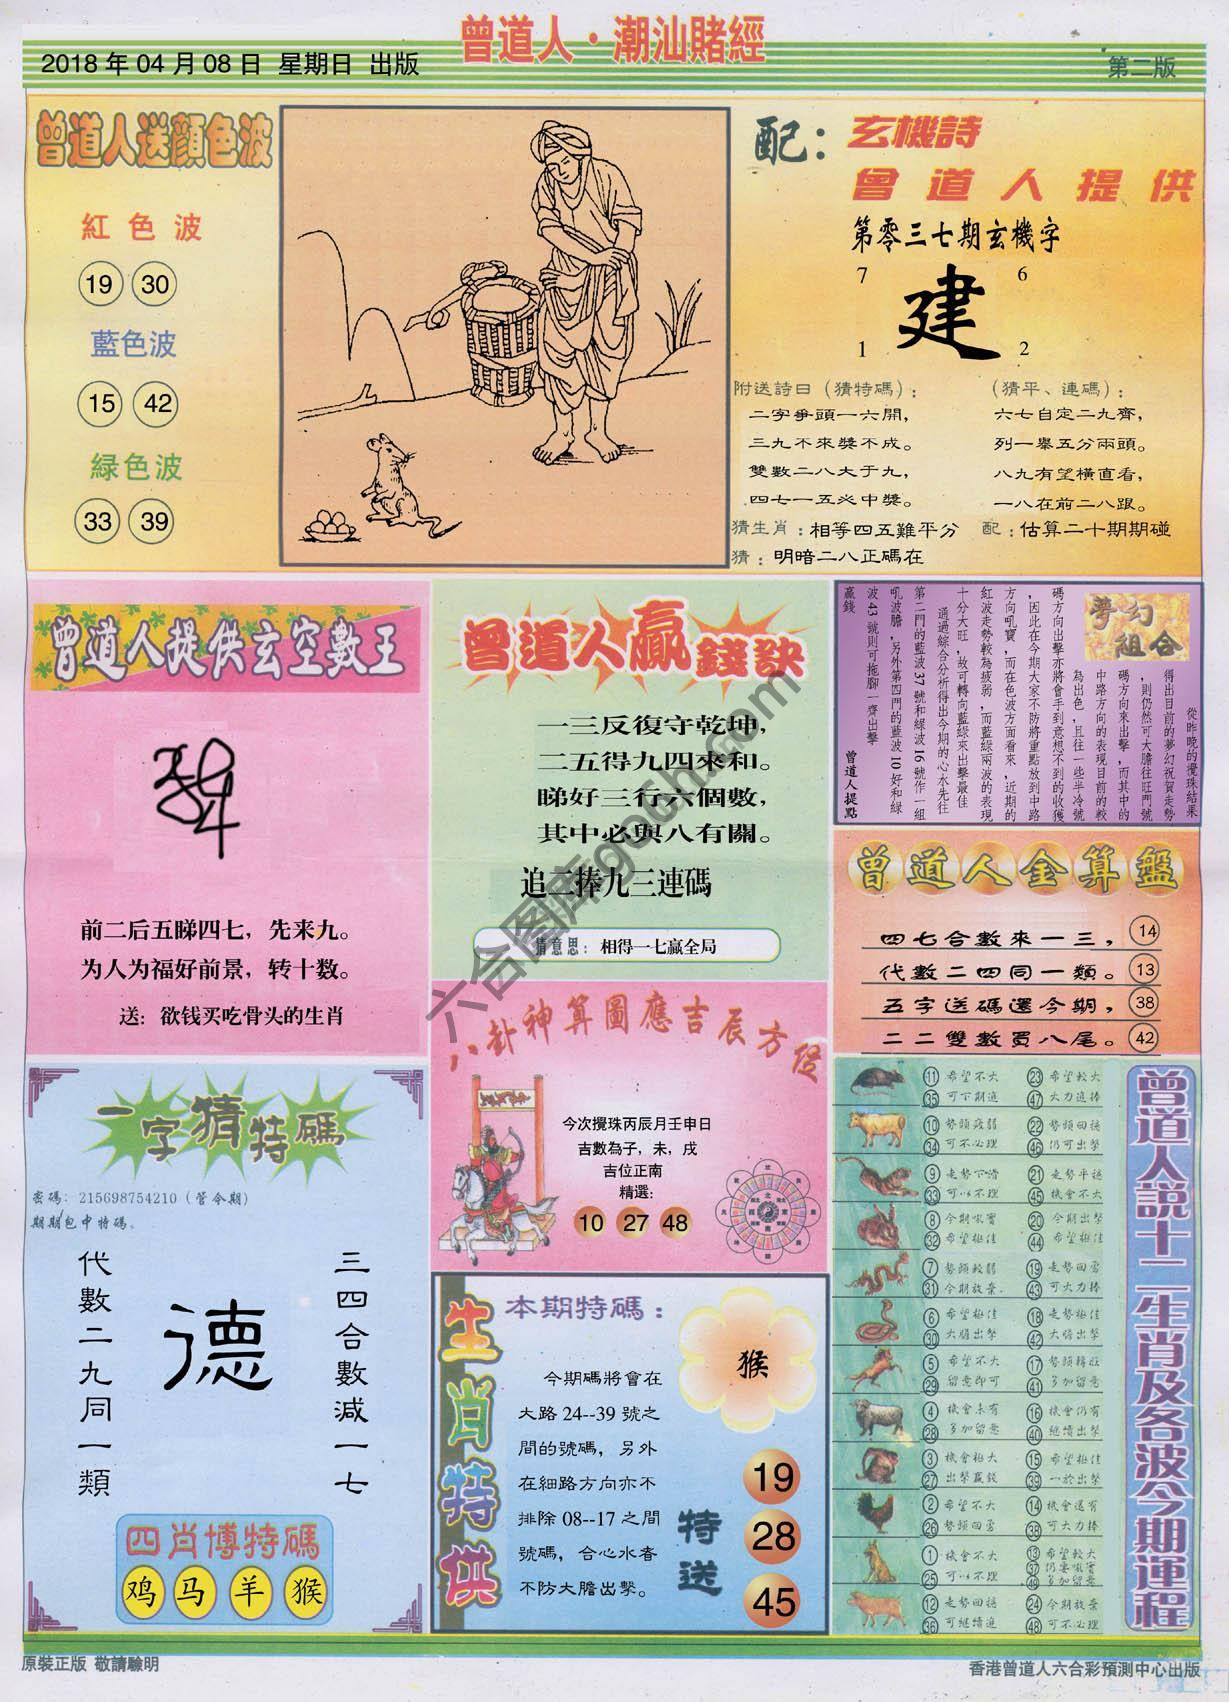 曾道人·潮汕賭經
2018 年 04 月 08 日 星期日 出版
第二版
曾道人送顏色波
紅色波
19 30
藍色波
15 42
綠色波
33 39
配：玄機詩
曾道人提供
第零三七期玄機字
7 6
建
1 2
附送詩日（猜特碼）：
二字爭頭一六開，
三九不來獎不成。
雙數二八大于九，
四七一五必中獎。
（猜平、連碼）：
六七自定二九齊，
列一舉五分兩頭。
八九有望橫直看，
一八在前二八跟。
猜生肖：相等四五難平分
配：估算二十期期碰
猜：明暗二八正碼在
曾道人提供玄空數王
前二后五睇四七，先来九。
为人为福好前景，转十数。
送：欲钱买吃骨头的生肖
曾道人贏錢訣
一三反復守乾坤，
二五得九四來和。
睇好三行六個數，
其中必與八有關。
追二捧九三連碼
猜意思：相得一七贏全局
夢幻
組合
從昨晚的攪珠結果
得出目前的夢幻祝賀走勢
，則仍然可大膽往旺門號
碼方向來出擊，而其中的
中路方向的表現目前的較
為出色，且往一些半冷號
碼方向出擊亦將會手到意想不到的收獲
，因此在今期大家不防將重點放到中路
方向吼寶，而在色波方面看來，近期的
紅波走勢較為疲弱，而藍綠兩波的表現
十分大旺，故可轉向藍綠來出擊最佳
通過綜合分析得出今期的心水先往
第二門的藍波 37 號和綠波 16 號作一組
吼波膽，另外第四門的藍波 10 好和綠
波 43 號則可拖腳一齊出擊
贏錢
曾道人提點
曾道人金算盤
四七合數來一三， 14
代數二四同一類。 13
五字送碼還今期， 38
二二雙數買八尾。 42
八卦神算圖應吉辰方位
今次攪珠丙辰月壬申日
吉數為子，未，戌
吉位正南
精選：
10 27 48
一字猜特碼
密碼：215698754210（管今期）
期期包中特碼。
代數二九同一類
德
三四合數減一七
四肖博特碼
鸡 马 羊 猴
生肖特供
本期特碼：
猴
今期碼將會在
大路 24--39 號之
間的號碼，另外
在細路方向亦不
排除 08--17 之間
號碼，合心水者
不防大膽出擊。
特送
19
28
45
曾道人說十二生肖及各波今期運程
11 希望不大 23 希望較大
35 可下期追 47 大力追捧
10 勢頭疲弱 22 勢頭回穩
34 可不必理 46 仍可出擊
9 走勢下滑 21 走勢平穩
33 可以不理 45 機會不大
8 今期吼寶 20 今期出擊
32 希望極佳 44 希望極佳
7 勢頭較弱 19 走勢回勇
31 今期放棄 43 可大力捧
6 希望極佳 18 走勢極佳
30 大膽出擊 42 大膽出擊
5 希望不大 17 勢頭轉旺
29 留意即可 41 多加留意
4 機會未有 16 機會仍有
28 多加留意 40 繼續出擊
3 機會極大 15 希望極佳
27 出擊贏錢 39 一於出擊
2 希望不大 14 機會還有
26 勢頭回勇 38 可大力捧
1 機會不大 13 希望較大
25 可以不理 37 仍要吼寶
49 多加留意
12 走勢回穩 24 今期放棄
36 可繼續追 48 可不必理
原裝正版 敬請驗明
香港曾道人六合彩預測中心出版
六合图库gocn.com